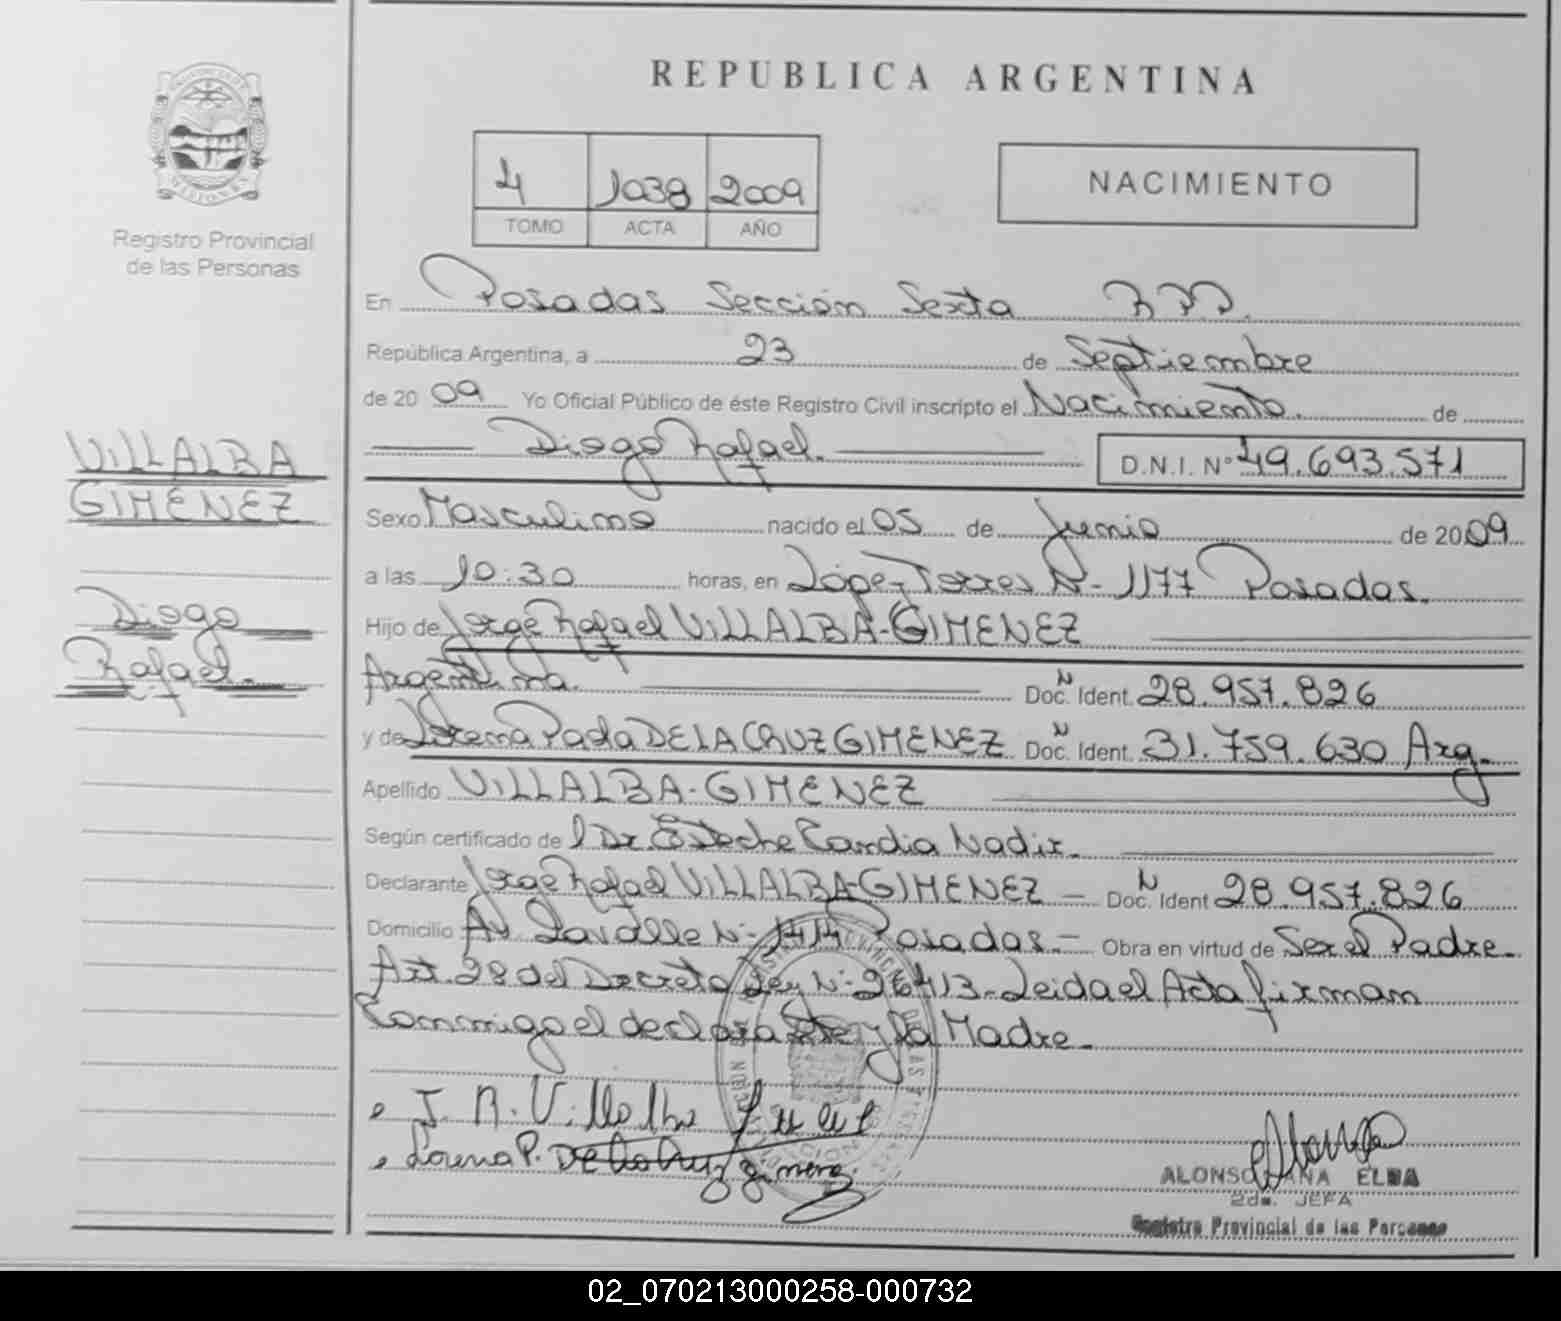 REPUBLICA ARGENTINA
MISIONES
Registro Provincial
de las Personas
4 1038 2009
TOMO ACTA AÑO
NACIMIENTO
En Posadas Sección Sexta R.P.P.
República Argentina, a 23 de Septiembre
de 2009 Yo Oficial Público de éste Registro Civil inscripto el Nacimiento de
Diego Rafael. D.N.I. Nº 49.693.571
VILLALBA
GIMENEZ
Diego
Rafael.
Sexo Masculino nacido el 05 de Junio de 2009
a las 10:30 horas, en López Torres Nº 1177 Posadas.
Hijo de Jorge Rafael VILLALBA-GIMENEZ
Argentina. Doc. Ident. N 28.957.826
y de Lorena Paola DE LA CRUZ GIMENEZ Doc. Ident. N 31.759.630 Arg.
Apellido VILLALBA-GIMENEZ
Según certificado del Dr Esteche Candia Nadir.
Declarante Jorge Rafael VILLALBA-GIMENEZ - Doc. Ident N 28.957.826
Domicilio Av Lavalle Nº Posadas.- Obra en virtud de Ser el Padre.
Art. 28 del Decreto Ley Nº 26413. Leida el Acta firman
Conmigo el declarante y la Madre.
J. R. Villalba
Lorena P. De la Cruz Gimenez.
ALONSO ANA ELBA
2da. JEFA
Registro Provincial de las Personas
02_070213000258-000732